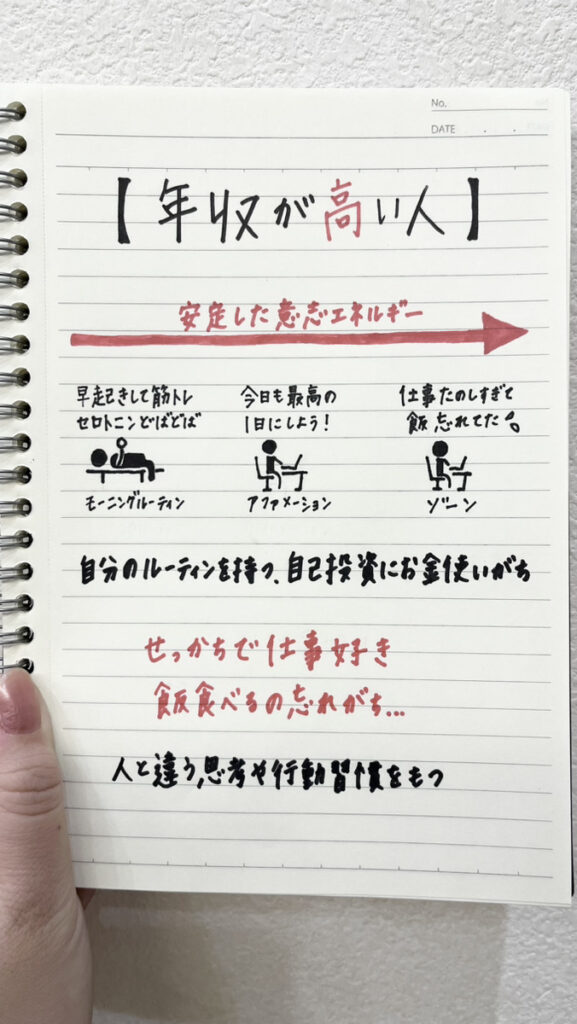 No.
DATE . . .
【年収が高い人】
安定した意志エネルギー
早起きして筋トレ
セロトニンどばどば
モーニングルーティン
今日も最高の
1日にしよう!
アファメーション
仕事たのしすぎて
飯忘れてた
ゾーン
自分のルーティンを持つ、自己投資にお金使いがち
せっかちで仕事好き
飯食べるの忘れがち...
人と違う、思考や行動習慣をもつ